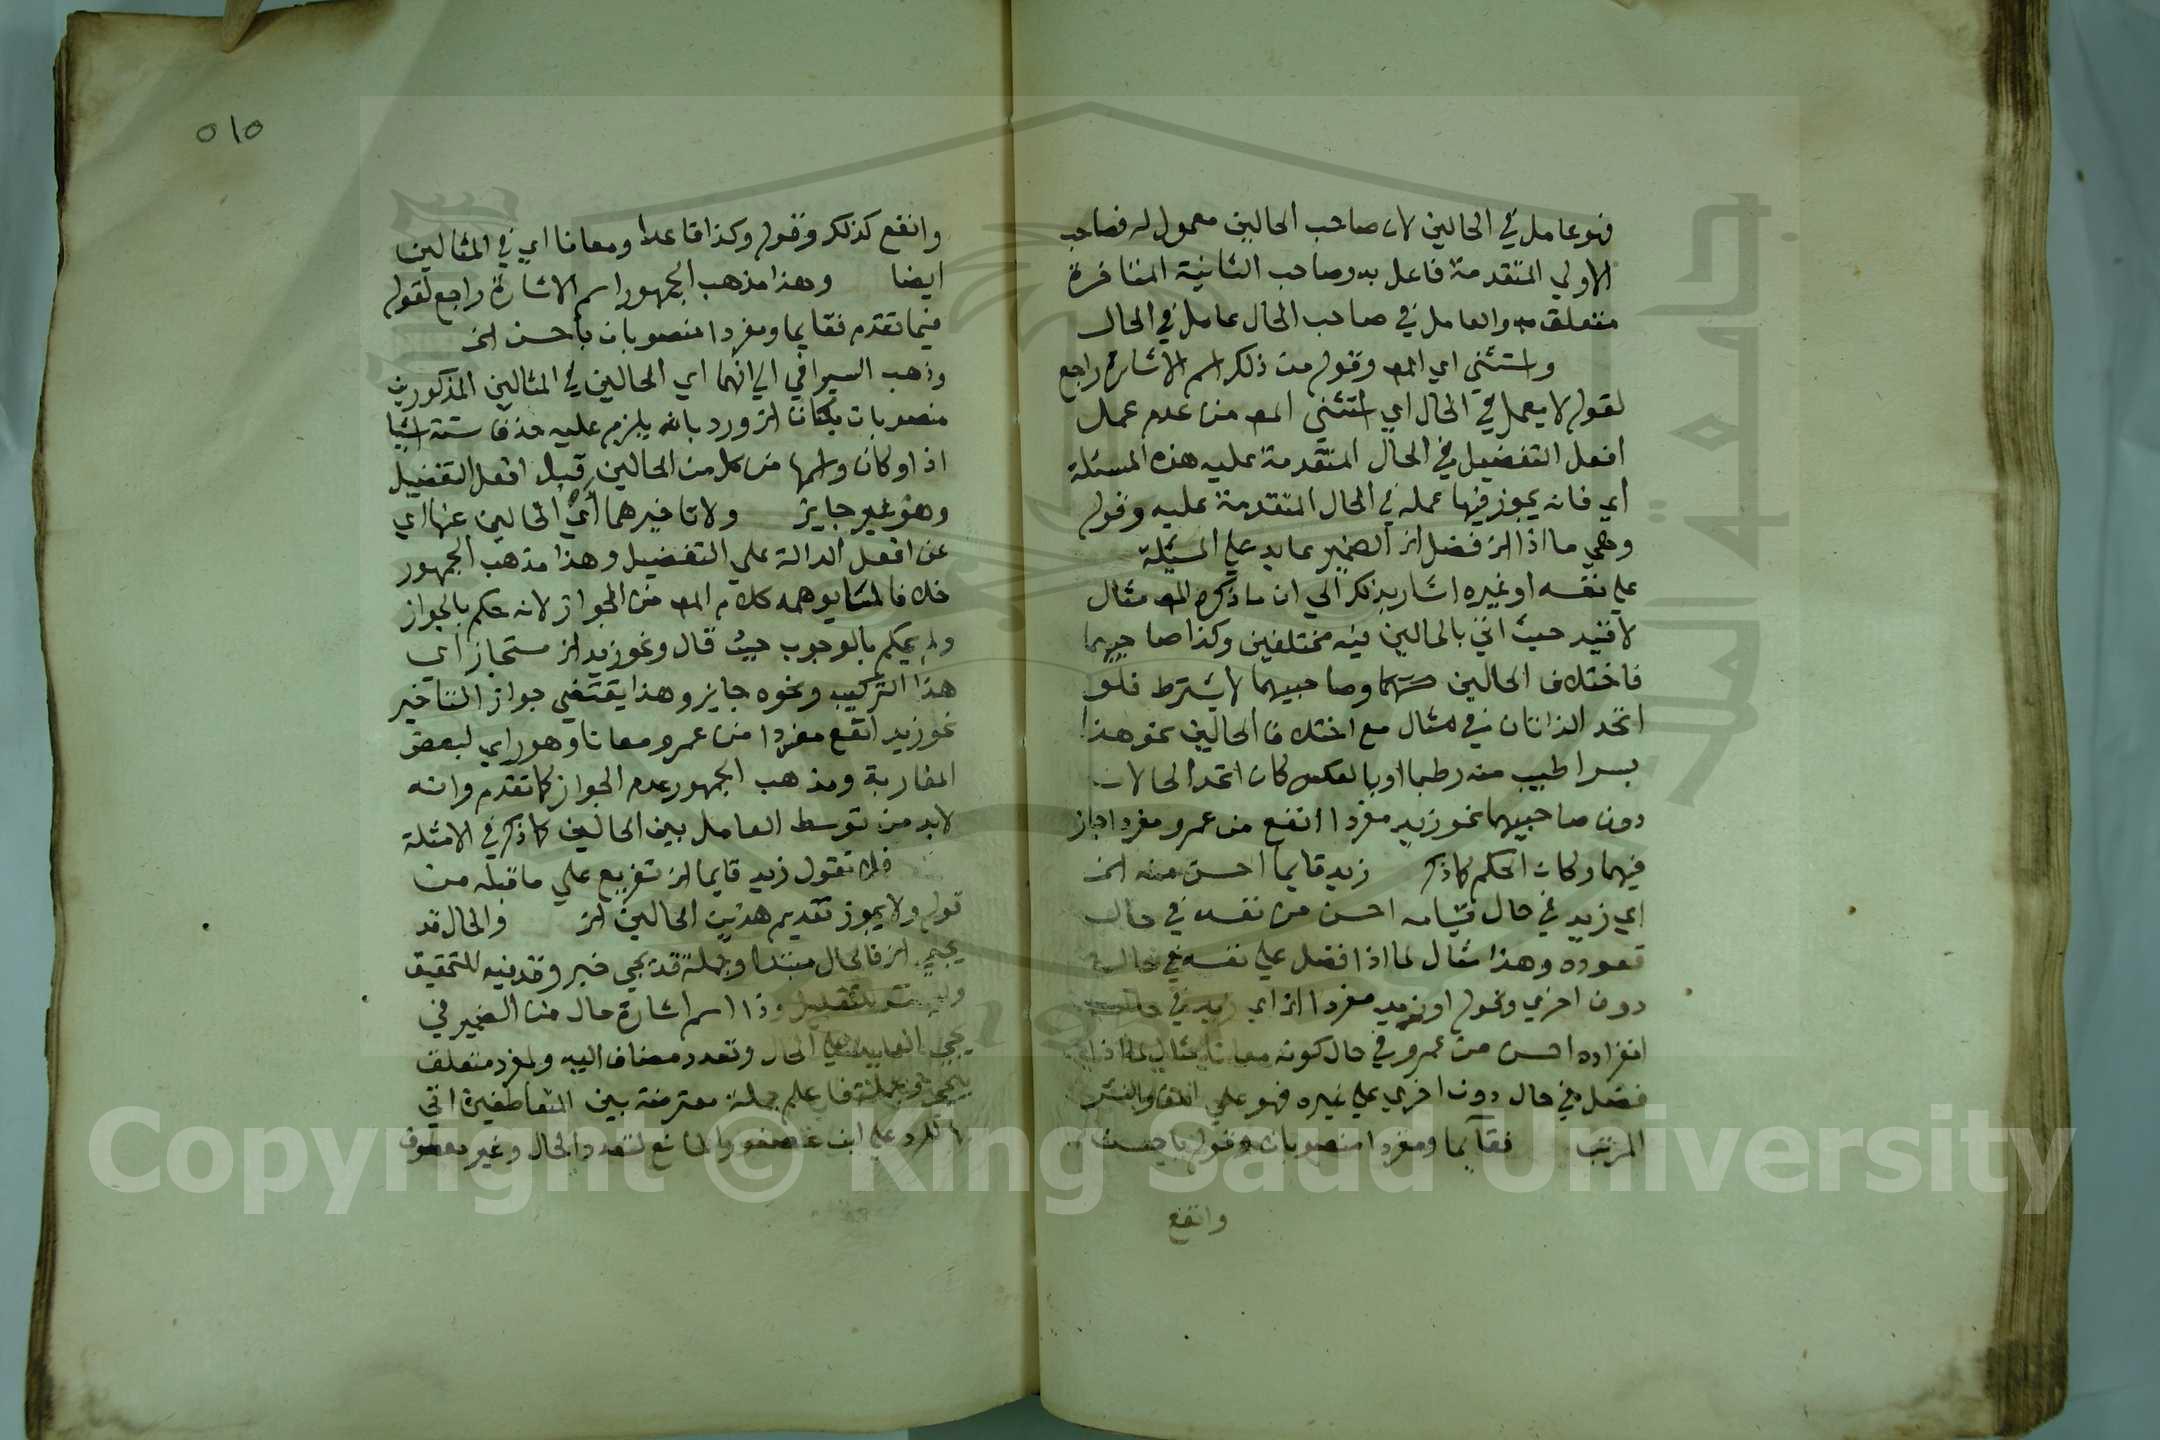 فهو عامل في الحالين لان صاحب الحالين معمول له فصاحب
الاولي المتقدمة فاعل به وصاحب الثانية المتاخرة
متعلق به والعامل في صاحب الحال عامل في الحال
واستثني اي المص وقوله من ذلك اسم الاشارة راجع
لقوله لا يعمل في الحال اي استثني المص من عدم عمل
افعل التفضيل في الحال المتقدمة عليه هذه المسئلة
اي فانه يجوز فيها عمله في الحال المتقدمة عليه وقوله
وهي ما اذا الخ فضل الخ الضمير عايد علي المسئلة
علي نفسه او غيره اشار بذلك الي ان ما ذكره المص مثال
لا قيد حيث اتي بالحالين فيه مختلفين وكذا صاحبيهما
فاختلاف الحالين وصاحبيهما لا يشترط فلو
اتحد الذاتان في مثال مع اختلاف الحالين نحو هذا
بسرا اطيب منه رطبا او بالعكس كان اتحد الحالان
دون صاحبيهما نحو زيد مفردا انفع من عمرو مفردا جاز
فيهما وكان الحكم كما ذكر زيد قايما احسن منه الخ
اي زيد في حال قيامه احسن من نفسه في حال
قعوده وهذا مثال لما اذا فضل علي نفسه في حال
دون اخري ونحو او زيد مفردا الخ اي زيد في حال
انفراده احسن من عمرو في حال كونه معانا مثال لما اذا
فضل في حال دون اخري علي غيره فهو علي اللف والنشر
المرتب فقايما ومفردا منصوبان وقوله باحسن
وانفع
٥١٥
وانفع كذلك وقوله وكذا قاعدا ومعانا اي في المثالين
ايضا وهذا مذهب الجمهور اسم الاشارة راجع لقوله
فيما تقدم فقايما ومفردا منصوبان باحسن الخ
وذهب السيرافي الي انهما اي الحالين في المثالين المذكورين
منصوبان بكان الخ ورد بانه يلزم عليه حذف ستة اشيا
اذ او كان واسمها من كل من الحالين قبل افعل التفضيل
وهو غير جايز ولا تاخيرهما اي الحالين عنها اي
عن افعل الدالة علي التفضيل وهذا مذهب الجمهور
خلافا لما يوهمه كلام المص من الجواز لانه حكم بالجواز
ولم يحكم بالوجوب حيث قال ونحو زيد الخ مستجاز اي
هذا التركيب ونحوه جايز وهذا يقتضي جواز التاخير
نحو زيد انفع مفردا من عمرو معانا وهو راي لبعض
المغاربة ومذهب الجمهور عدم الجواز كما تقدم وانه
لا بد من توسط العامل بين الحالين كما ذكر في الامثلة
فلا تقول زيد قايما الخ تفريع علي ما قبله من
قوله ولا يجوز تقديم هذين الحالين الخ والحال قد
يجيي الخ فالحال مبتدا وجملة قد يجي خبر وقد فيه للتحقيق
وليست للتقليل وذا اسم اشارة حال من الضمير في
يجي العايد علي الحال وتعدد مضاف اليه ولمفرد متعلق
بيجي وجملة فاعلم جملة معترضة بين المتعاطفين اتي
بها للرد علي ابن عصفور المانع لتعدد الحال وغير معطوف
Copyright © King Saud University